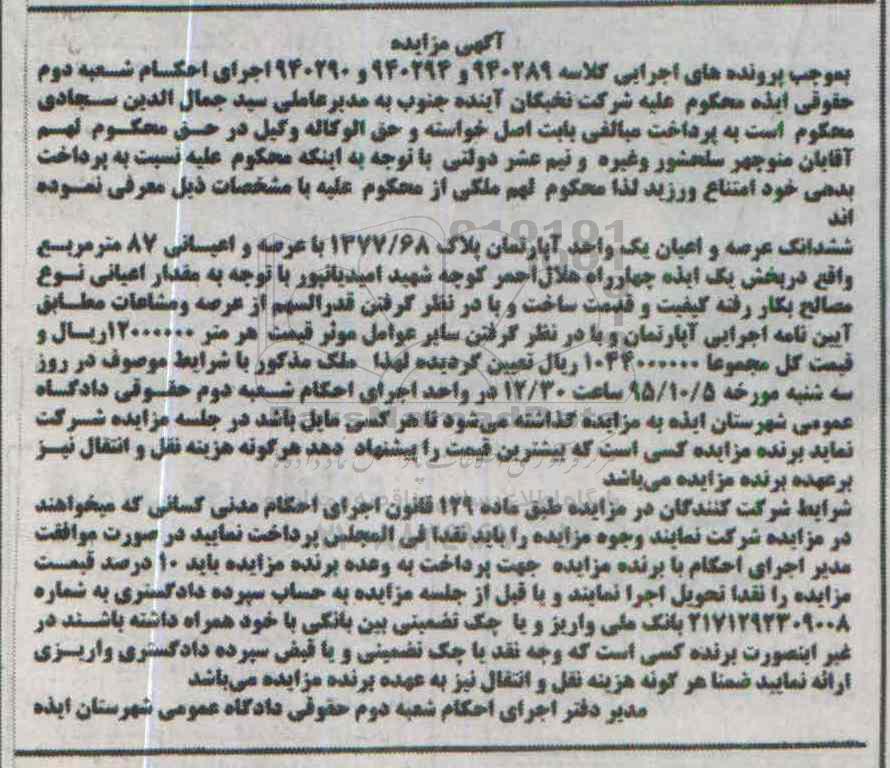 آگهی مزایده
بموجب پرونده های اجرایی کلاسه ۹۴۰۲۸۹ و ۹۴۰۲۹۴ و ۹۴۰۲۹۰ اجرای احکام شعبه دوم
حقوقی ایذه محکوم علیه شرکت نخبگان آینده جنوب به مدیرعاملی سید جمال الدین سجادی
محکوم است به پرداخت مبالغی بابت اصل خواسته و حق الوکاله وکیل در حق محکوم لهم
آقایان منوچهر سلحشور وغیره و نیم عشر دولتی با توجه به اینکه محکوم علیه نسبت به پرداخت
بدهی خود امتناع ورزید لذا محکوم لهم ملکی از محکوم علیه با مشخصات ذیل معرفی نموده
اند
ششدانک عرصه و اعیان یک واحد آپارتمان پلاک ۱۳۷۷/۶۸ با عرصه و اعیانی ۸۷ مترمربع
واقع دربخش یک ایذه چهارراه هلال احمر کوچه شهید امیدیانپور با توجه به مقدار اعیانی نوع
مصالح بکار رفته کیفیت و قیمت ساخت و با در نظر گرفتن قدرالسهم از عرصه ومشاعات مطابق
آیین نامه اجرایی آپارتمان و با در نظر گرفتن سایر عوامل موثر قیمت هر متر ۱۲۰۰۰۰۰۰ریال و
قیمت کل مجموعا ۱۰۴۴۰۰۰۰۰۰ ریال تعیین گردیده لهذا ملک مذکور با شرایط موصوف در روز
سه شنبه مورخه ۹۵/۱۰/۵ ساعت ۱۲/۳۰ در واحد اجرای احکام شعبه دوم حقوقی دادگاه
عمومی شهرستان ایذه به مزایده گذاشته می‌شود تا هر کسی مایل باشد در جلسه مزایده شرکت
نماید برنده مزایده کسی است که بیشترین قیمت را پیشنهاد دهد هرگونه هزینه نقل و انتقال نیز
برعهده برنده مزایده می‌باشد
شرایط شرکت کنندگان در مزایده طبق ماده ۱۲۹ قانون اجرای احکام مدنی کسانی که میخواهند
در مزایده شرکت نمایند وجوه مزایده را باید نقدا فی المجلس پرداخت نمایید در صورت موافقت
مدیر اجرای احکام با برنده مزایده جهت پرداخت به وعده برنده مزایده باید ۱۰ درصد قیمت
مزایده را نقدا تحویل اجرا نمایند و یا قبل از جلسه مزایده به حساب سپرده دادگستری به شماره
۲۱۷۱۲۹۲۳۰۹۰۰۸ بانک ملی واریز و یا چک تضمینی بین بانکی با خود همراه داشته باشند در
غیر اینصورت برنده کسی است که وجه نقد یا چک تضمینی و یا قبض سپرده دادگستری واریزی
ارائه نمایید ضمنا هر گونه هزینه نقل و انتقال نیز به عهده برنده مزایده می‌باشد
مدیر دفتر اجرای احکام شعبه دوم حقوقی دادگاه عمومی شهرستان ایذه